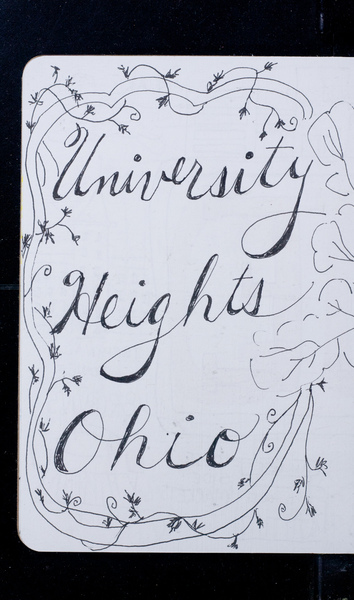 University
Heights
Ohio